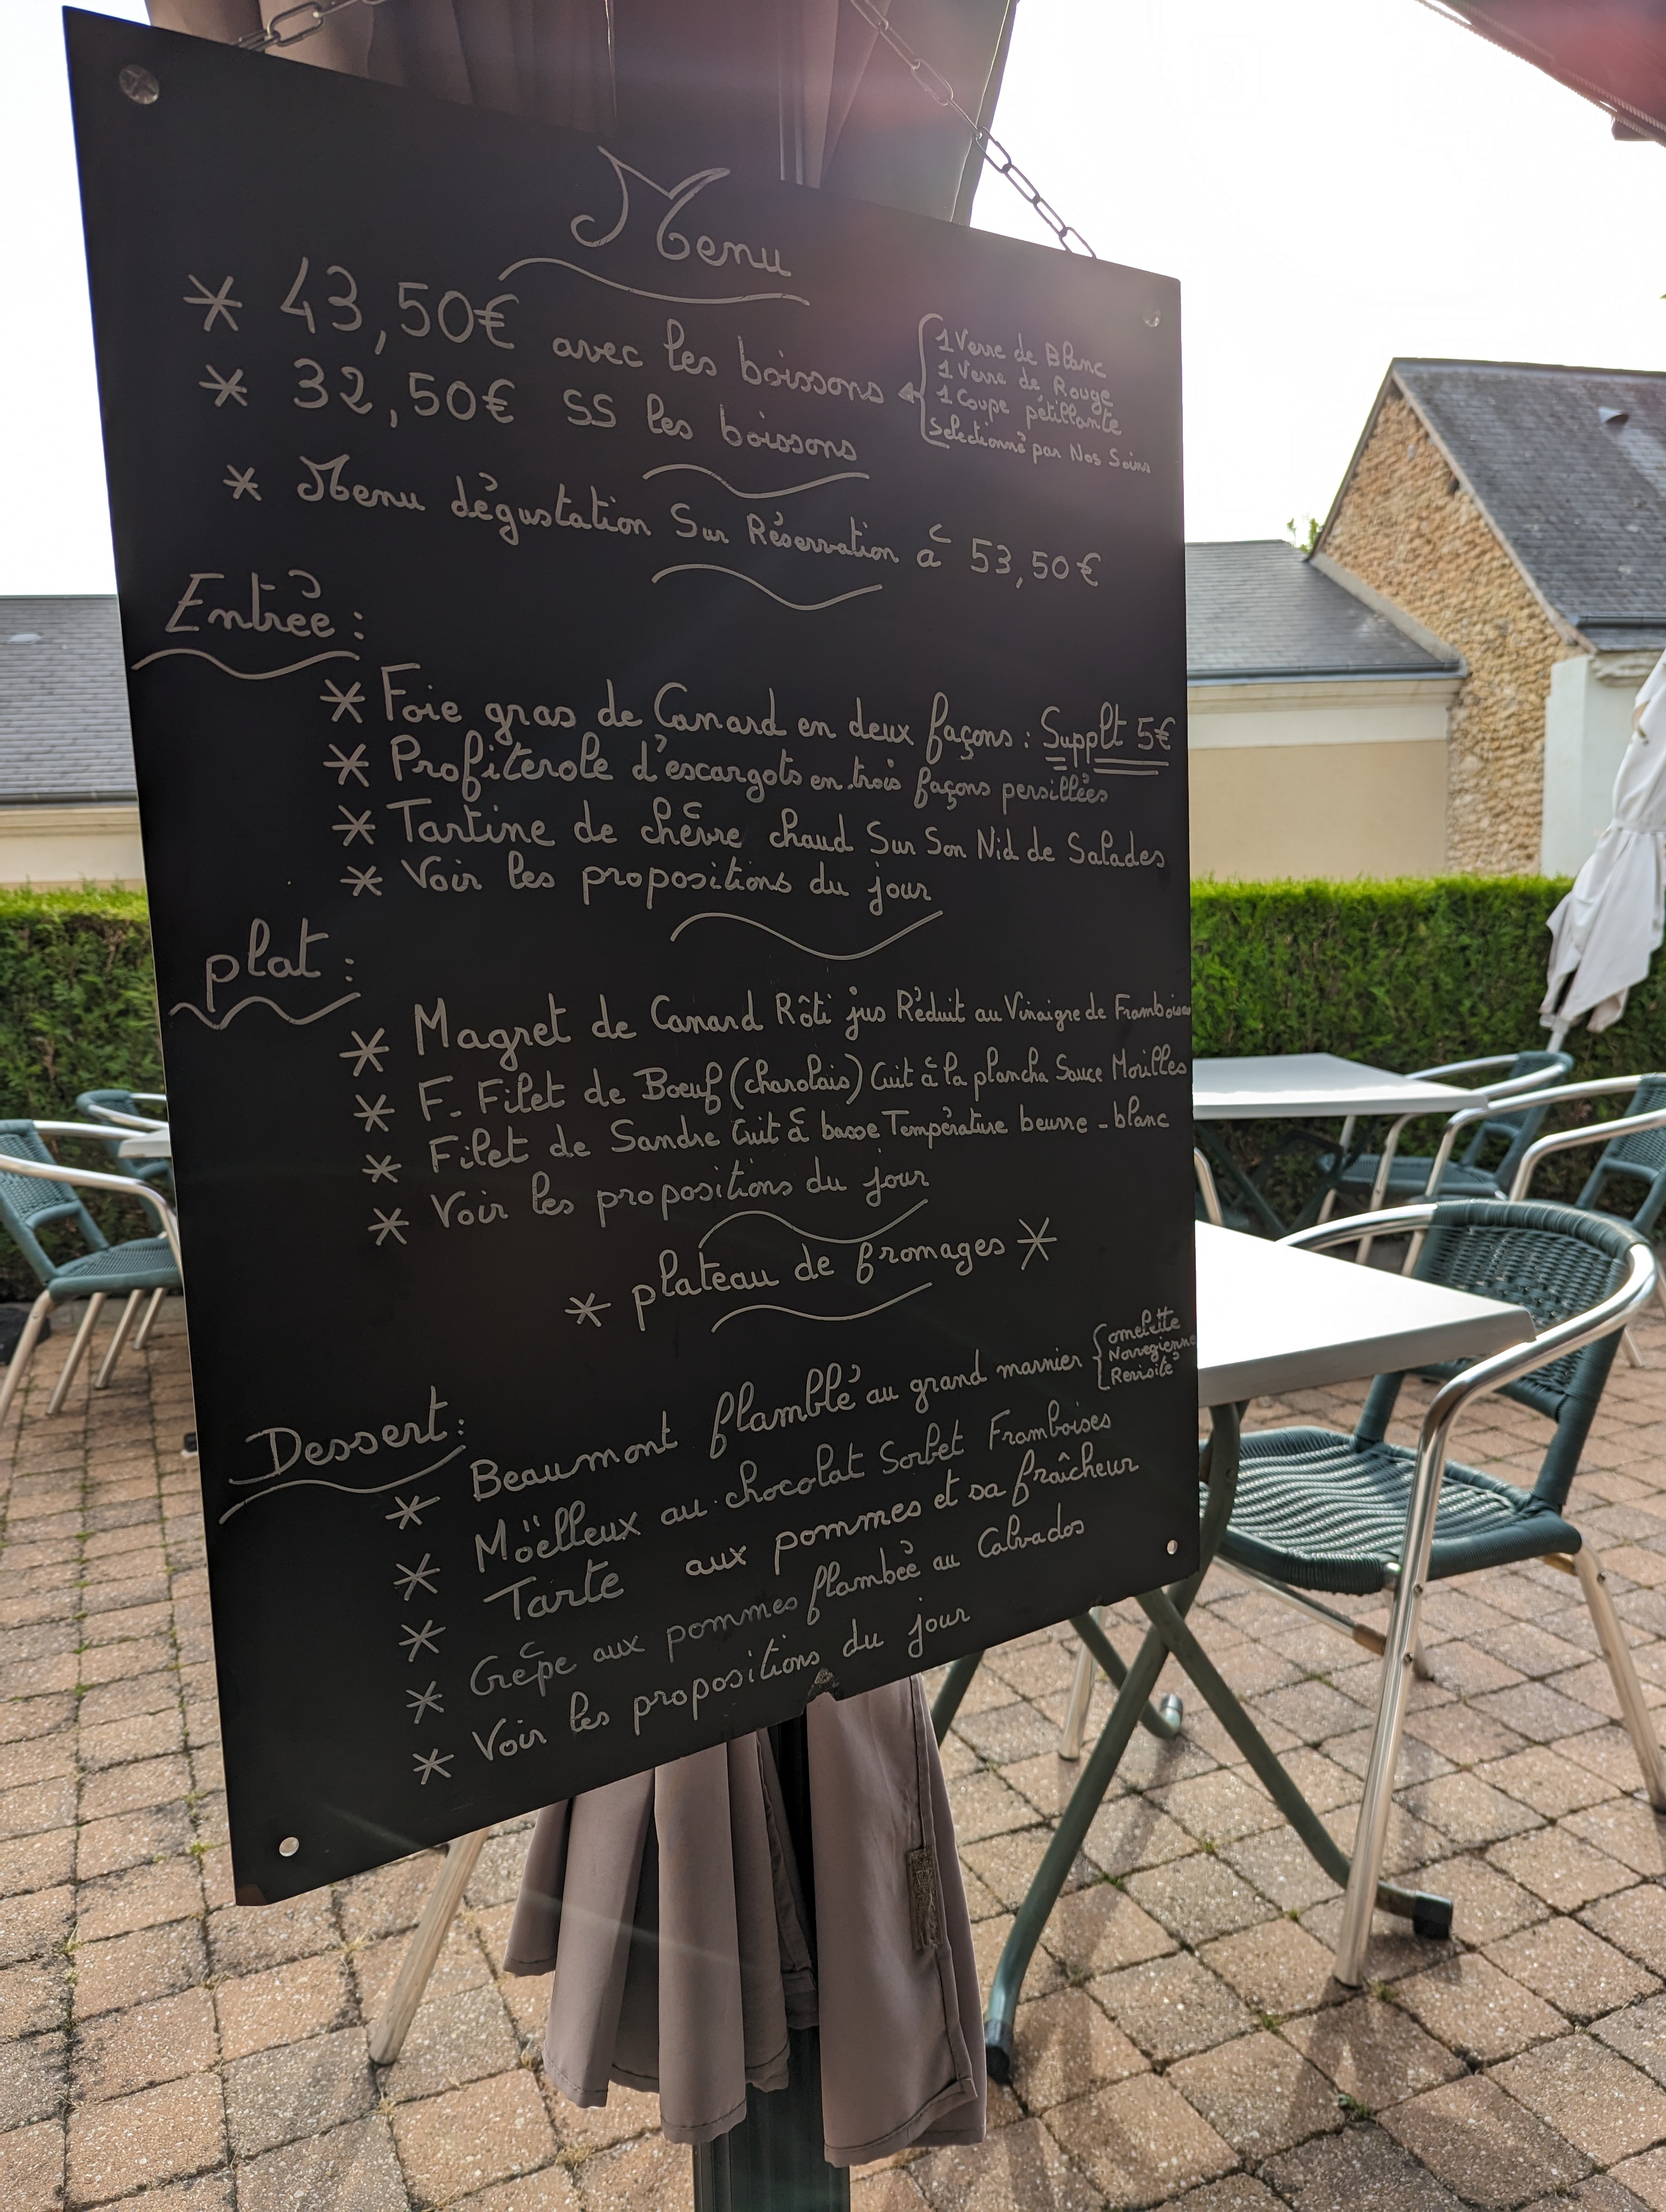 Menu
* 43,50€ avec les boissons
1 Verre de Blanc
1 Verre de Rouge
1 Coupe pétillante
Selectionné par Nos Soins
* 32,50€ SS les boissons
* Menu dégustation Sur Réservation à 53,50€
Entrée :
* Foie gras de Canard en deux façons : Supplt 5€
* Profiterole d'escargots en trois façons persillées
* Tartine de chêvre chaud Sur Son Nid de Salades
* Voir les propositions du jour
plat :
* Magret de Canard Rôti jus Réduit au Vinaigre de Framboises
* F. Filet de Bœuf (charolais) Cuit à la plancha Sauce Morilles
* Filet de Sandre Cuit à basse Température beurre - blanc
* Voir les propositions du jour
* plateau de fromages *
Dessert :
* Beaumont flamblé au grand marnier
omelette
Norregienne
Revisité
* Möelleux au chocolat Sorbet Framboises
* Tarte aux pommes et sa fraîcheur
* Crêpe aux pommes flambée au Calvados
* Voir les propositions du jour